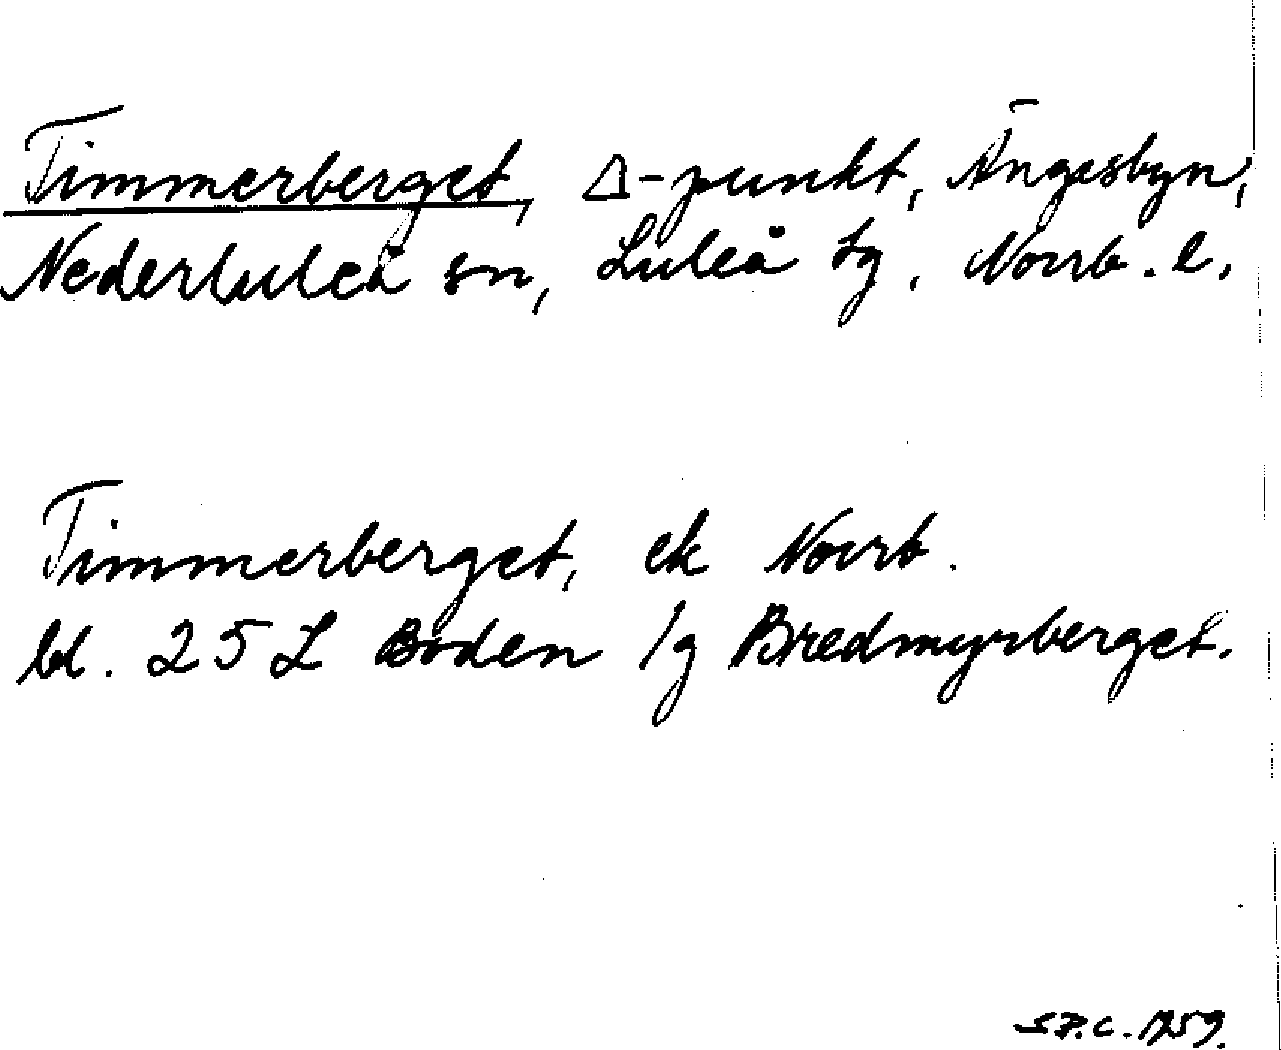 Timmerberget, Δ-punkt, Ängesbyn,
Nederluleå sn, Luleå tg, Norrb. l.
Timmerberget, ek Norrb.
bl. 25 L Boden /g Bredmyrberget.
S.P.C. 1959.